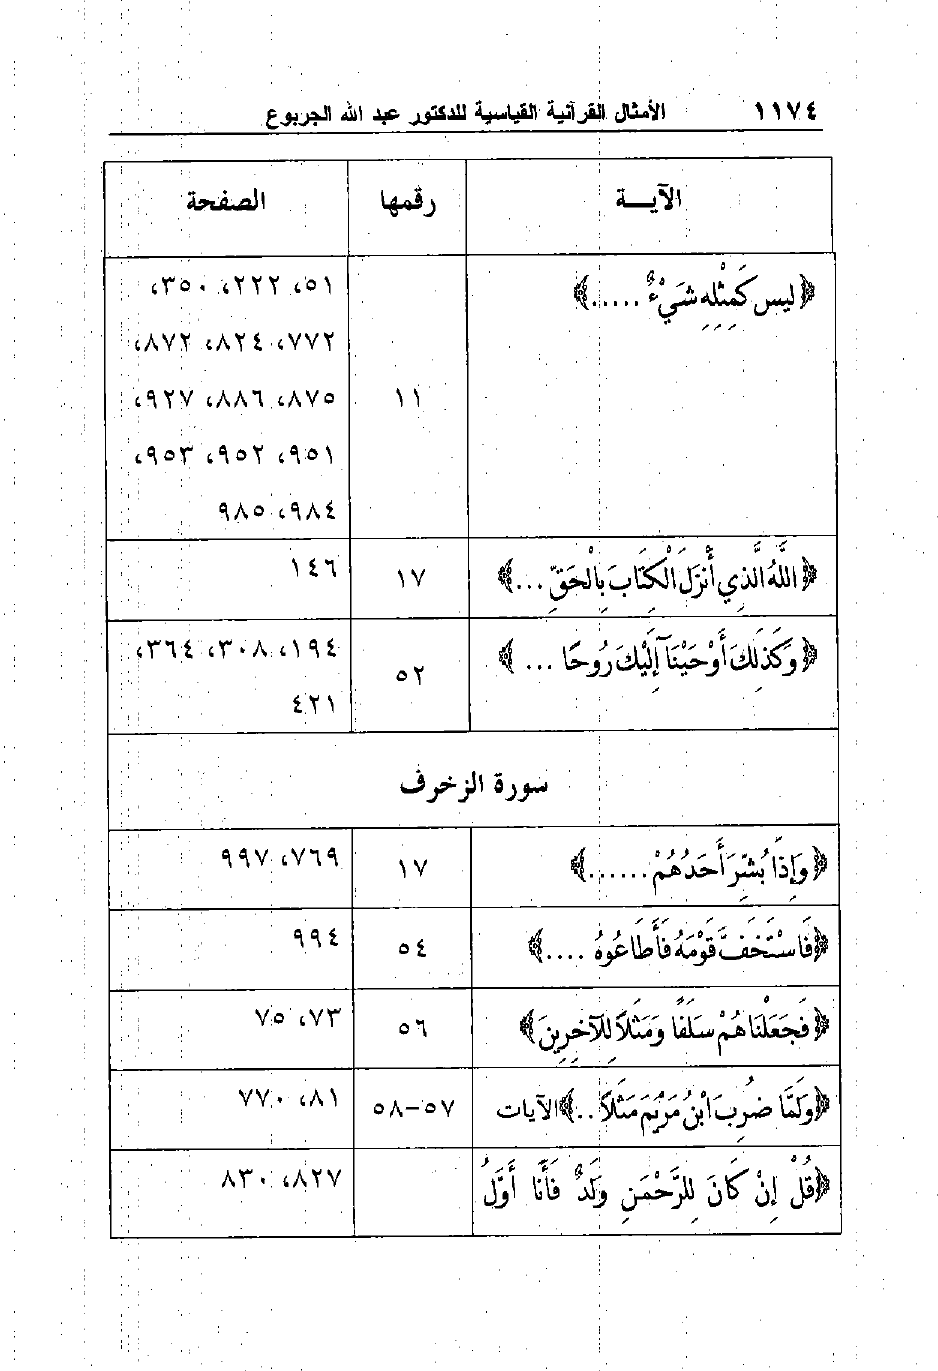 ١١٧٤ الأمثال القرآنية القياسية للدكتور عبد الله الجربوع
الآيـــة رقمها الصفحة
﴿ليس كَمِثْلِهِ شَيْءٌ .....﴾ ١١ ٥١، ٢٢٢، ٣٥٠،
٧٧٢، ٨٢٤، ٨٧٢،
٨٧٥، ٨٨٦، ٩٢٧،
٩٥١، ٩٥٢، ٩٥٣،
٩٨٤، ٩٨٥
﴿اللَّهُ الَّذِي أَنْزَلَ الْكِتَابَ بِالْحَقِّ ...﴾ ١٧ ١٤٦
﴿وَكَذَلِكَ أَوْحَيْنَآ إِلَيْكَ رُوحًا ... ﴾ ٥٢ ١٩٤، ٣٠٨، ٣٦٤،
٤٢١
سورة الزخرف
﴿وَإِذَا بُشِّرَ أَحَدُهُمْ ......﴾ ١٧ ٧٦٩، ٩٩٧
﴿فَاسْتَخَفَّ قَوْمَهُ فَأَطَاعُوهُ ....﴾ ٥٤ ٩٩٤
﴿فَجَعَلْنَاهُمْ سَلَفًا وَمَثَلاً لِلآخِرِينَ﴾ ٥٦ ٧٣، ٧٥
﴿وَلَمَّا ضُرِبَ ابْنُ مَرْيَمَ مَثَلاً ..﴾الآيات ٥٧–٥٨ ٨١، ٧٧٠
﴿قُلْ إِنْ كَانَ لِلرَّحْمَنِ وَلَدٌ فَأَنَا أَوَّلُ ٨٢٧، ٨٣٠